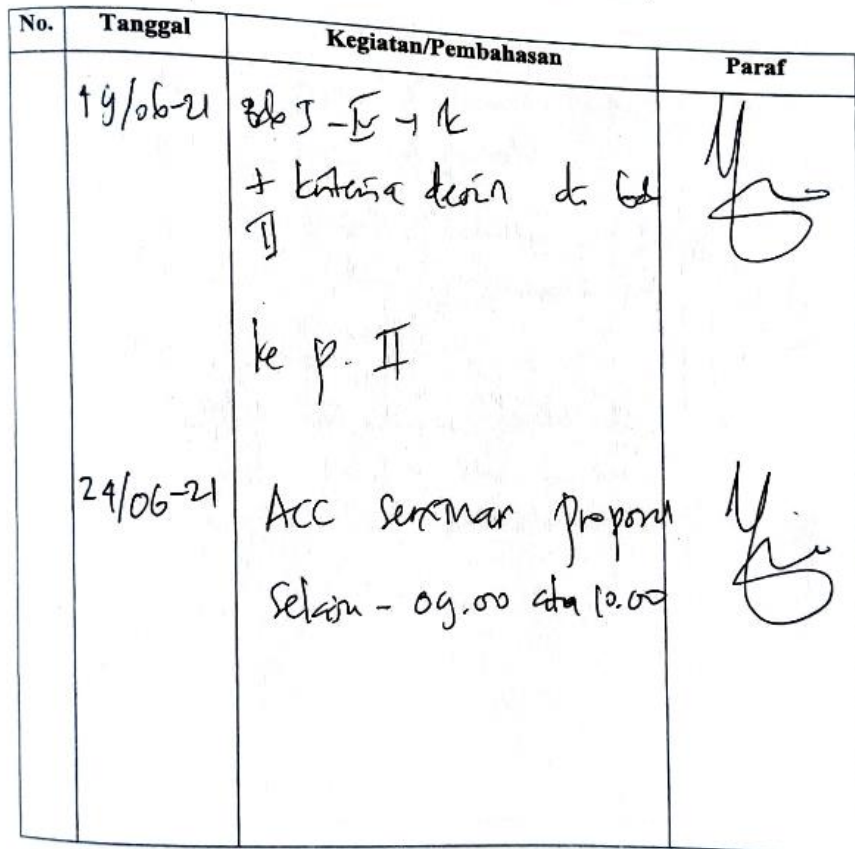 No. Tanggal Kegiatan/Pembahasan Paraf
19/06-21 I - IV → k
+ kriteria desain di bab
II
ke p. II
24/06-21 ACC seminar proposal
Selasa - 09.00 atau 10.00